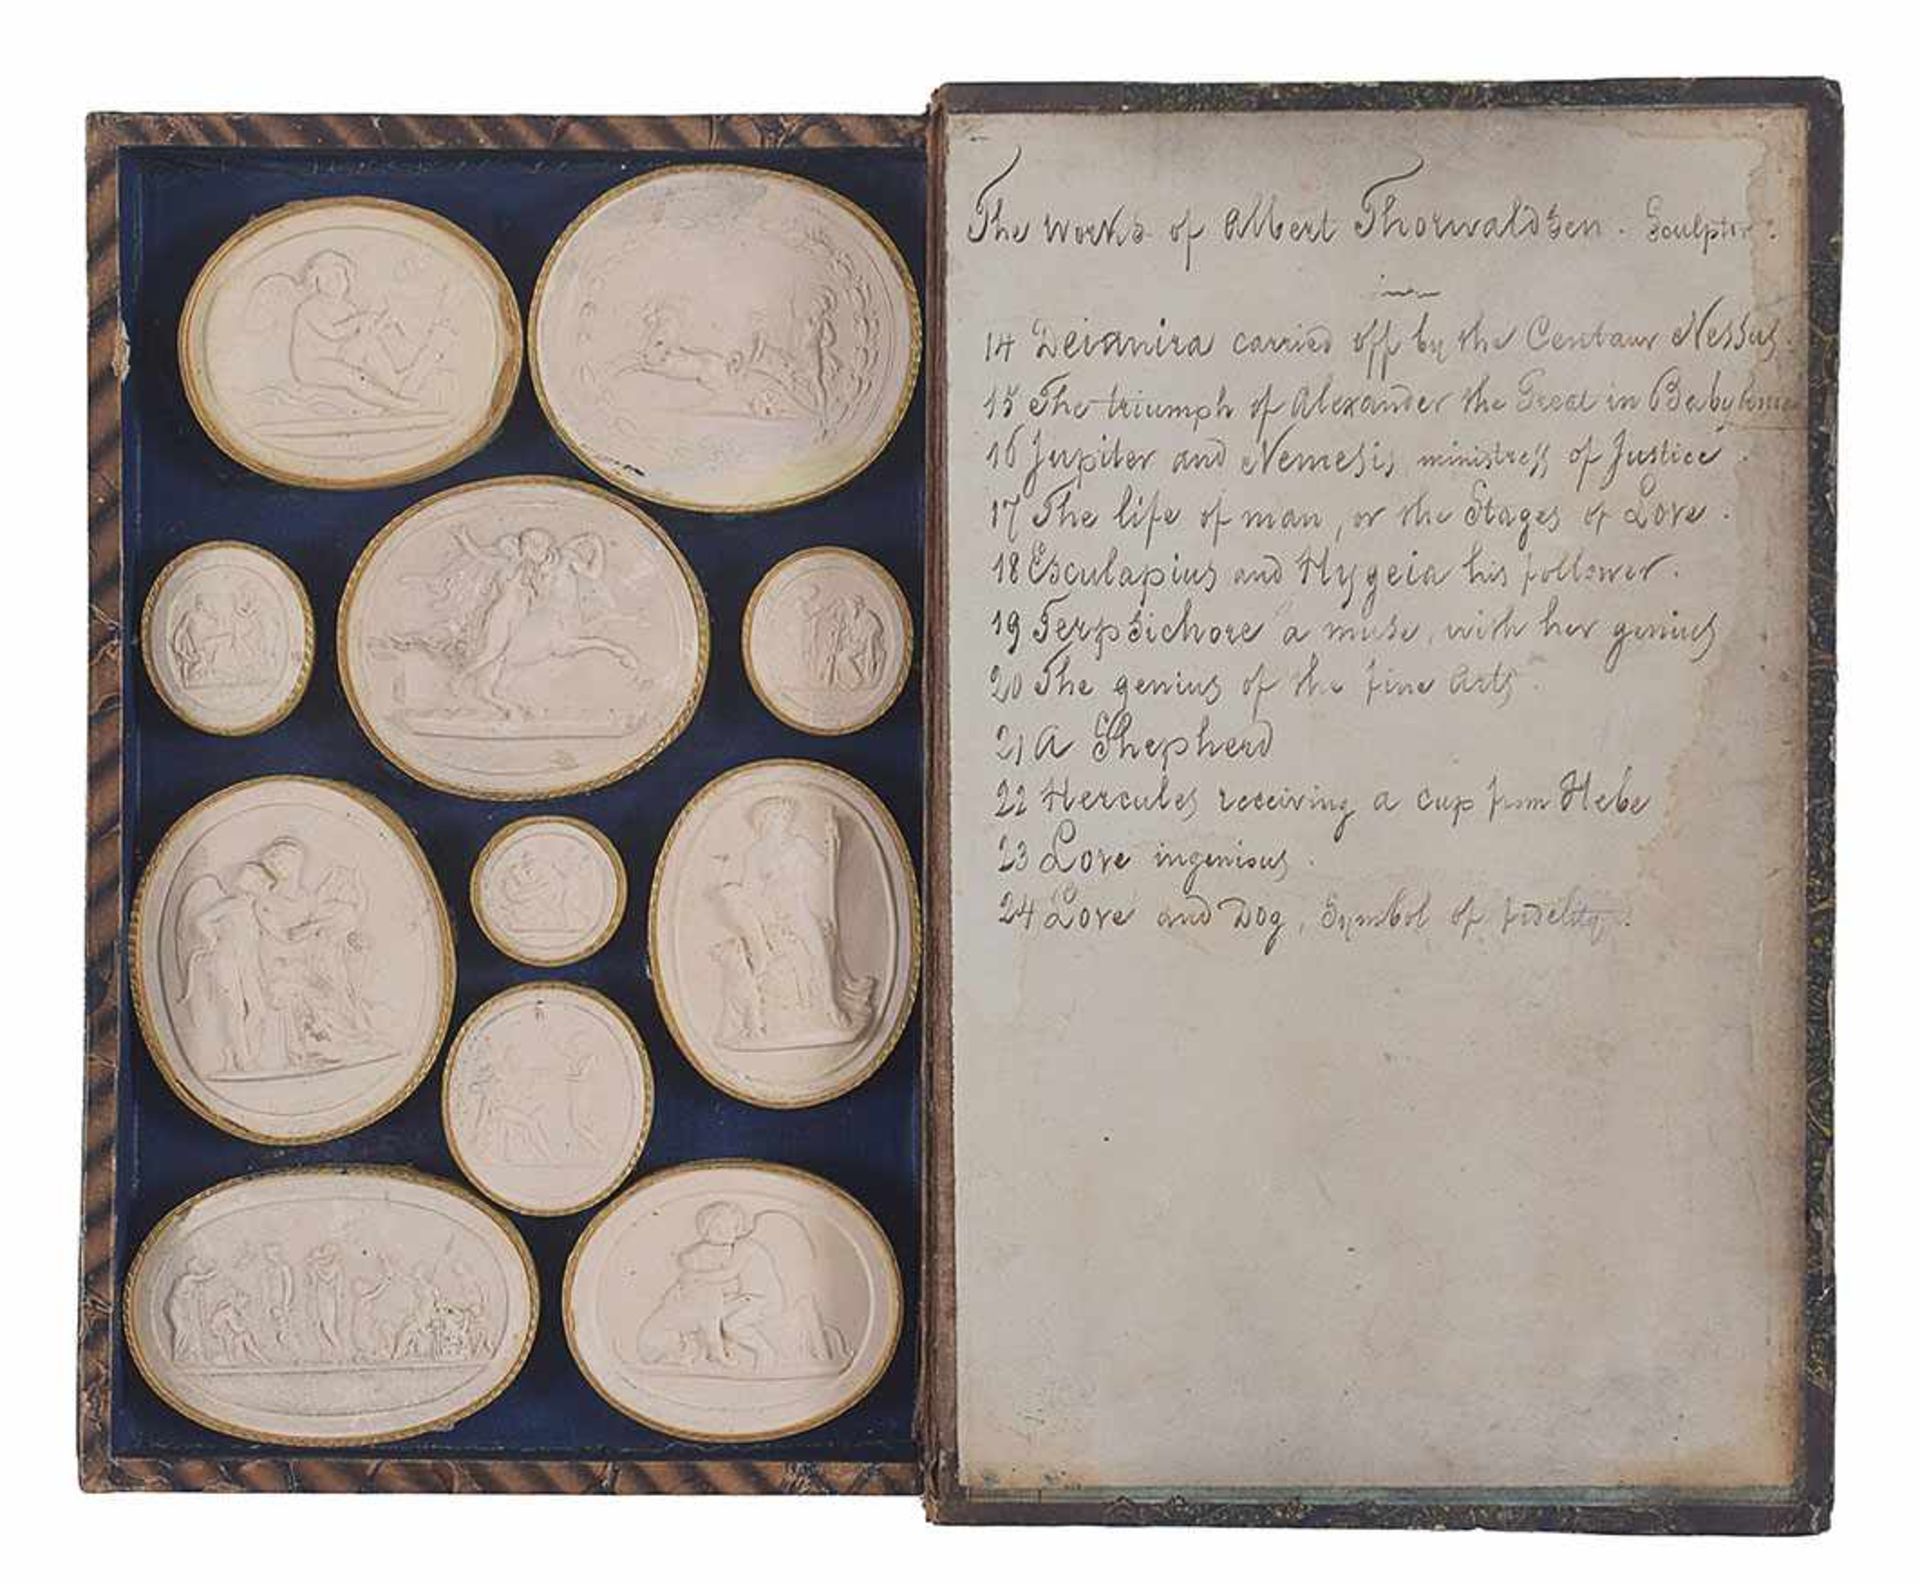 The works of Albert Thorwaldsen. Sculptor.
14 Deianira carried off by the Centaur Nessus.
15 The triumph of Alexander the Great in
16 Jupiter and Nemesis ministress of Justice.
17 The life of man, or the Stages of Love.
18 Esculapius and Hygeia his follower.
19 Terpsichore a muse, with her genius
20 The genius of the fine arts.
21 A Shepherd
22 Hercules receiving a cup from Hebe
23 Love ingenious.
24 Love and Dog, Symbol of fidelity.